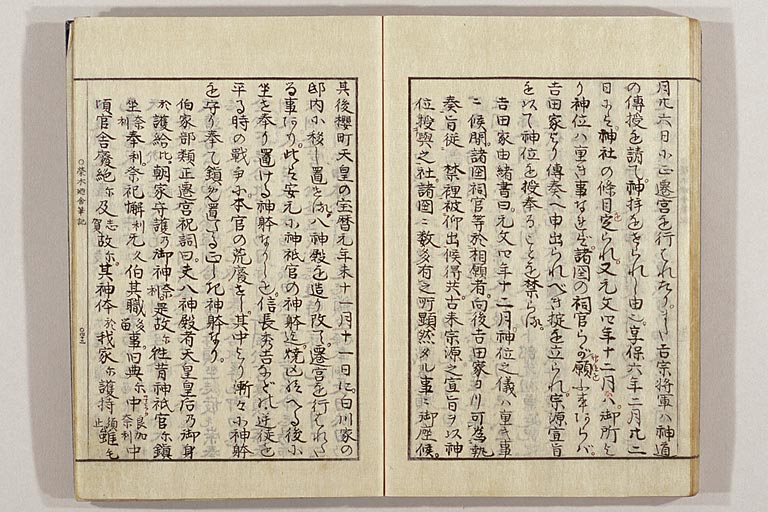 月廿六日に正遷宮を行てれたり。さて吉宗将軍ハ神道
の傳授を請て。神拝をせられし由之。享保六年二月廿二
日に。神社の條目を定られ。又元文四年十二月ハ。御所を
り神位ハ重き事なれど。諸国の祠官らが願ふまゝならバ。
吉田家より傳奏へ申出られべき掟を立られ。宗源宣旨
を以て神位を授奉ることを禁らる。
吉田家由緒書曰。元文四年十二月。神位之儀ハ重キ事
ニ候間。諸国祠官等於相願者。向後吉田家ヨリ可為執
奏旨。従 禁裡被仰出候。得共。古来宗源之宣旨ヲ以神
位授與之社。諸国ニ数多有之。町顕然タル事ニ御座候。
其後櫻町天皇の宝暦元年未十一月十一日に。白川家の
邸内に移し置る。八神殿を造り改て。遷宮を行れた
る事あり。此を安元に神祇官の神躰迄焼亡給へる後に
坐を奉り置ける神躰なりしを。信長秀吉などの。逆徒を
平る時の戦争に本官の荒廃をし。其中より漸々に神躰
を守り奉て鎮め置てる正しき神躰なり。
伯家部類正遷宮祝詞曰。夫八神殿者天皇皇后乃御身
於護給比。朝家守護乃御神奈利。是故尓往昔神祇官尓鎮
坐奈利奉利祭祀懈利无久。伯其職多事。旧典尓中
頃官舎廃絶尓及志賀故尓。其神体於我家尓護持須。雖毛
○榮木廼舎筆記